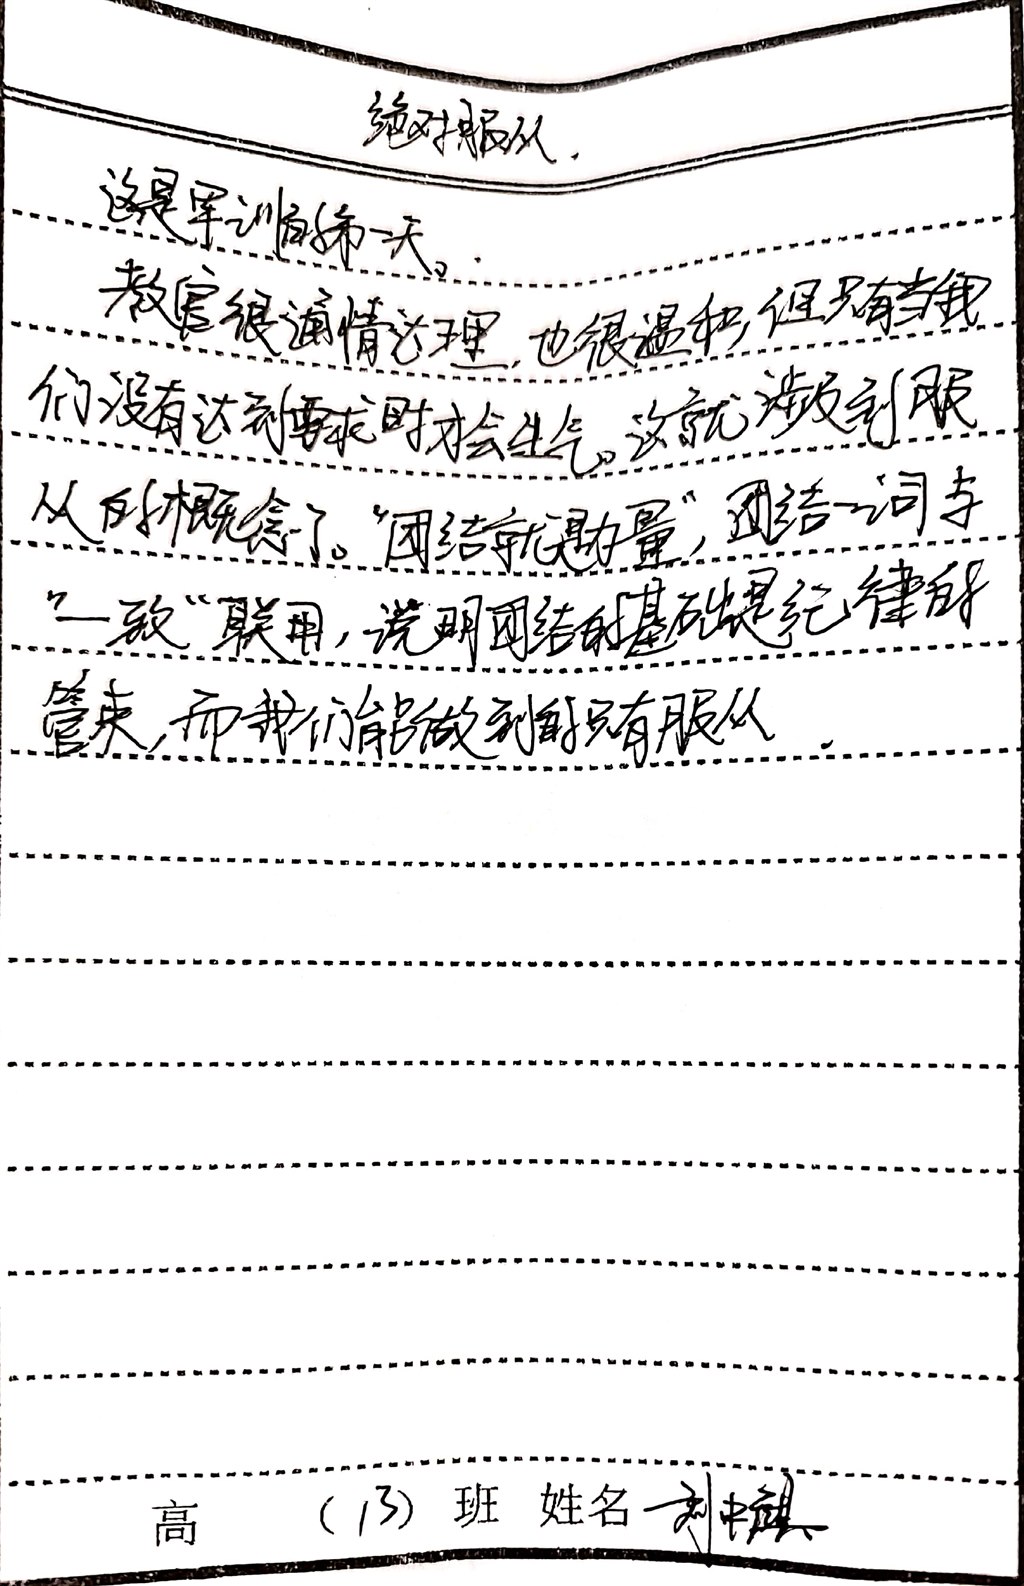 绝对服从.
这是军训的第一天。
教官很通情达理,也很温和,但只有当我
们没有达到要求时才会生气。这就涉及到服
从的概念了。“团结就是力量”,团结一词与
“一致”联用,说明团结的基础是纪律的
管束,而我们能做到的只有服从.
高 (13)班 姓名 刘中祺